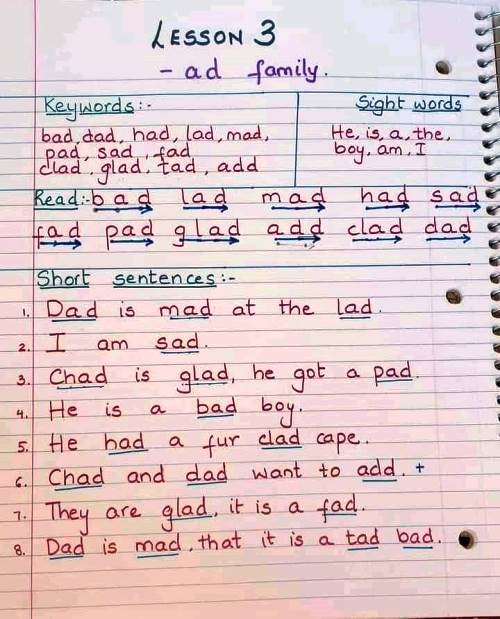 LESSON 3
- ad family.
Keywords:-
bad, dad, had, lad, mad,
pad, sad, fad
clad, glad, tad, add
Sight words
He, is, a, the,
boy, am, I
Read:- bad lad mad had sad
fad pad glad add clad dad
Short sentences:-
1. Dad is mad at the lad.
2. I am sad.
3. Chad is glad, he got a pad.
4. He is a bad boy.
5. He had a fur clad cape.
6. Chad and dad want to add. +
7. They are glad, it is a fad.
8. Dad is mad, that it is a tad bad.